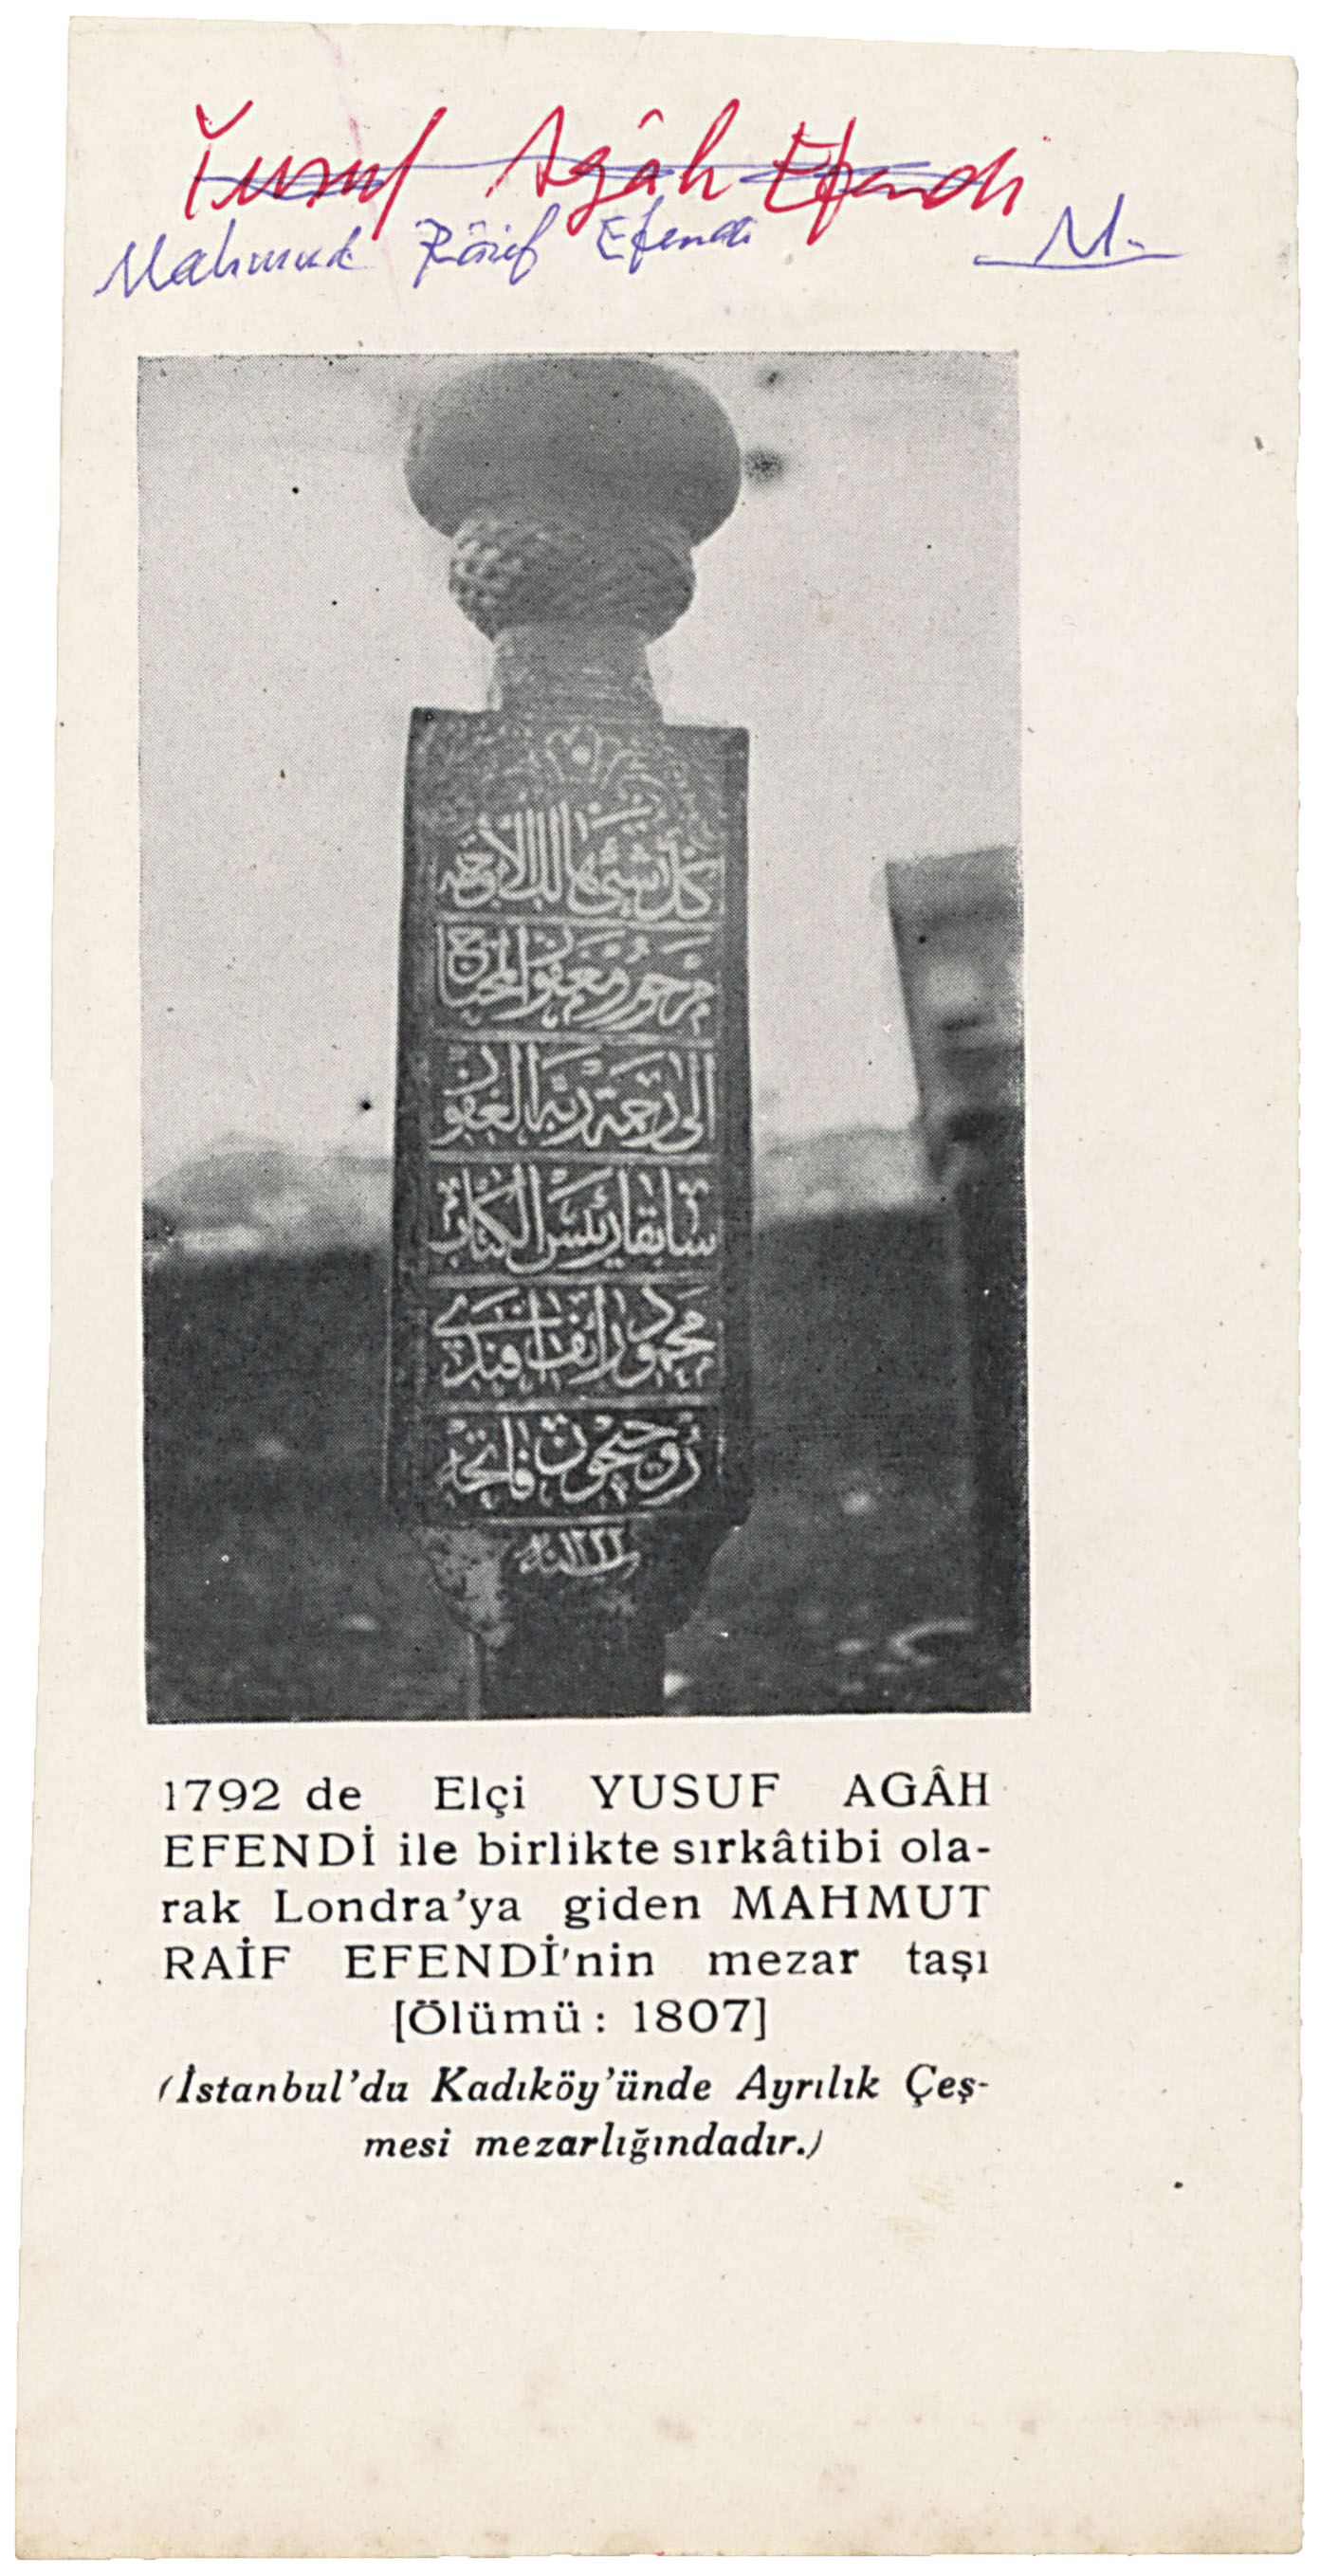 Yusuf Agâh Efendi
Mahmud Râif Efendi M.
كل شئ هالك الا وجهه
مرحوم و مغفور المحتاج
الى رحمة ربه الغفور
سابقا رئيس الكتاب
محمود رائف افندى
روحيچون فاتحه
سنه ١٢٢٢
1792 de Elçi YUSUF AGÂH
EFENDİ ile birlikte sırkâtibi ola-
rak Londra'ya giden MAHMUT
RAİF EFENDİ'nin mezar taşı
[Ölümü : 1807]
(İstanbul'du Kadıköy'ünde Ayrılık Çeş-
mesi mezarlığındadır.)